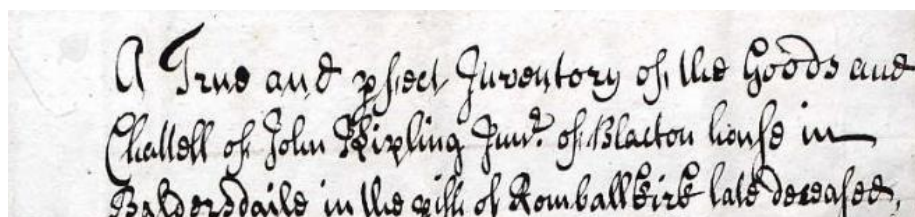 A True and pfect Inventory of the Goods and
Chattell of John Kipling Junr. of Blacton house in
Baldersdaile in the pish of Rombaldkirk late deceased,